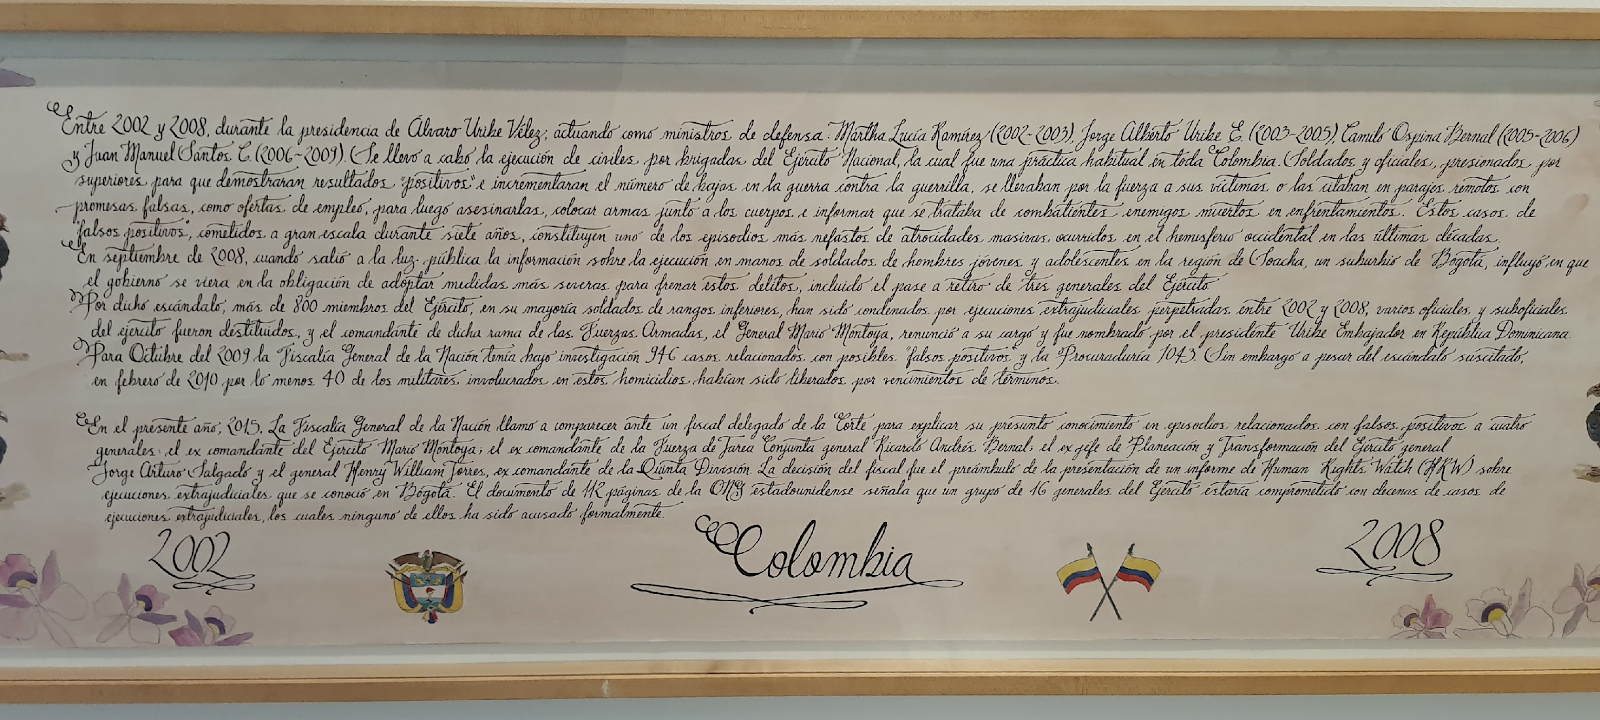 Entre 2002 y 2008, durante la presidencia de Álvaro Uribe Vélez; actuando como ministros de defensa: Martha Lucía Ramírez (2002-2003), Jorge Alberto Uribe E. (2003-2005), Camilo Ospina Bernal (2005-2006)
y Juan Manuel Santos C. (2006-2009). Se llevo a cabo la ejecución de civiles, por brigadas del Ejército Nacional, la cual fue una práctica habitual en toda Colombia. Soldados y oficiales, presionados por
superiores para que demostraran resultados "positivos" e incrementaran el número de bajas en la guerra contra la guerrilla, se llevaban por la fuerza a sus víctimas o las citaban en parajes remotos con
promesas falsas, como ofertas de empleo, para luego asesinarlas, colocar armas junto a los cuerpos e informar que se trataba de combatientes enemigos muertos en enfrentamientos. Estos casos de
"falsos positivos", cometidos a gran escala durante siete años, constituyen uno de los episodios más nefastos de atrocidades masivas ocurridos en el hemisferio occidental en las últimas décadas.
En septiembre de 2008, cuando salió a la luz pública la información sobre la ejecución en manos de soldados de hombres jóvenes y adolescentes en la región de Soacha, un suburbio de Bogotá, influyó en que
el gobierno se viera en la obligación de adoptar medidas más severas para frenar estos delitos, incluido el pase a retiro de tres generales del Ejército
Por dicho escándalo, más de 800 miembros del Ejército, en su mayoría soldados de rangos inferiores, han sido condenados por ejecuciones extrajudiciales perpetradas entre 2002 y 2008, varios oficiales y suboficiales
del ejercito fueron destituidos, y el comandante de dicha rama de las Fuerzas Armadas, el General Mario Montoya, renunció a su cargo y fue nombrado por el presidente Uribe Embajador en República Dominicana.
Para Octubre del 2009 la Fiscalía General de la Nación tenía bajo investigación 946 casos relacionados con posibles falsos positivos y la Procuraduría 1043. Sin embargo a pesar del escándalo suscitado,
en febrero de 2010 por lo menos 40 de los militares involucrados en estos homicidios habían sido liberados por vencimientos de términos.
En el presente año, 2015, La Fiscalía General de la Nación llamo a comparecer ante un fiscal delegado de la Corte para explicar su presunto conocimiento en episodios relacionados con falsos positivos a cuatro
generales: el ex comandante del Ejército Mario Montoya; el ex comandante de la Fuerza de Tarea Conjunta general Ricardo Andrés Bernal; el ex jefe de Planeación y Transformación del Ejército general
Jorge Arturo Salgado y el general Henry William Torres, ex comandante de la Quinta División. La decisión del fiscal fue el preámbulo de la presentación de un informe de Human Rights Watch (HRW) sobre
ejecuciones extrajudiciales que se conoció en Bogotá. El documento de 112 páginas de la ONG estadounidense señala que un grupo de 16 generales del Ejército estaría comprometido con decenas de casos de
ejecuciones extrajudiciales, los cuales ninguno de ellos ha sido acusado formalmente.
2002 Colombia 2008